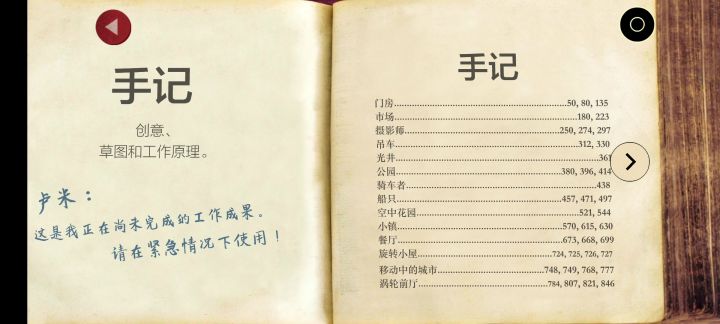 手记
创意、
草图和工作原理。
卢米：
这是我正在尚未完成的工作成果。
请在紧急情况下使用！
手记
门房50, 80, 135
市场180, 223
摄影师250, 274, 297
吊车312, 330
光井361
公园380, 396, 414
骑车者438
船只457, 471, 497
空中花园521, 544
小镇570, 615, 630
餐厅673, 668, 699
旋转小屋724, 725, 726, 727
移动中的城市748, 749, 768, 777
涡轮前厅784, 807, 821, 846